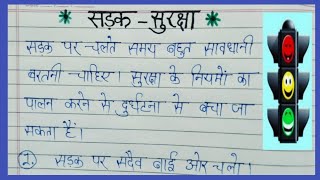 * सड़क - सुरक्षा *
सड़क पर चलते समय बहुत सावधानी
बरतनी चाहिए। सुरक्षा के नियमों का
पालन करने से दुर्घटना से बचा जा
सकता हैं।
1. सड़क पर सदैव बाईं ओर चलो।